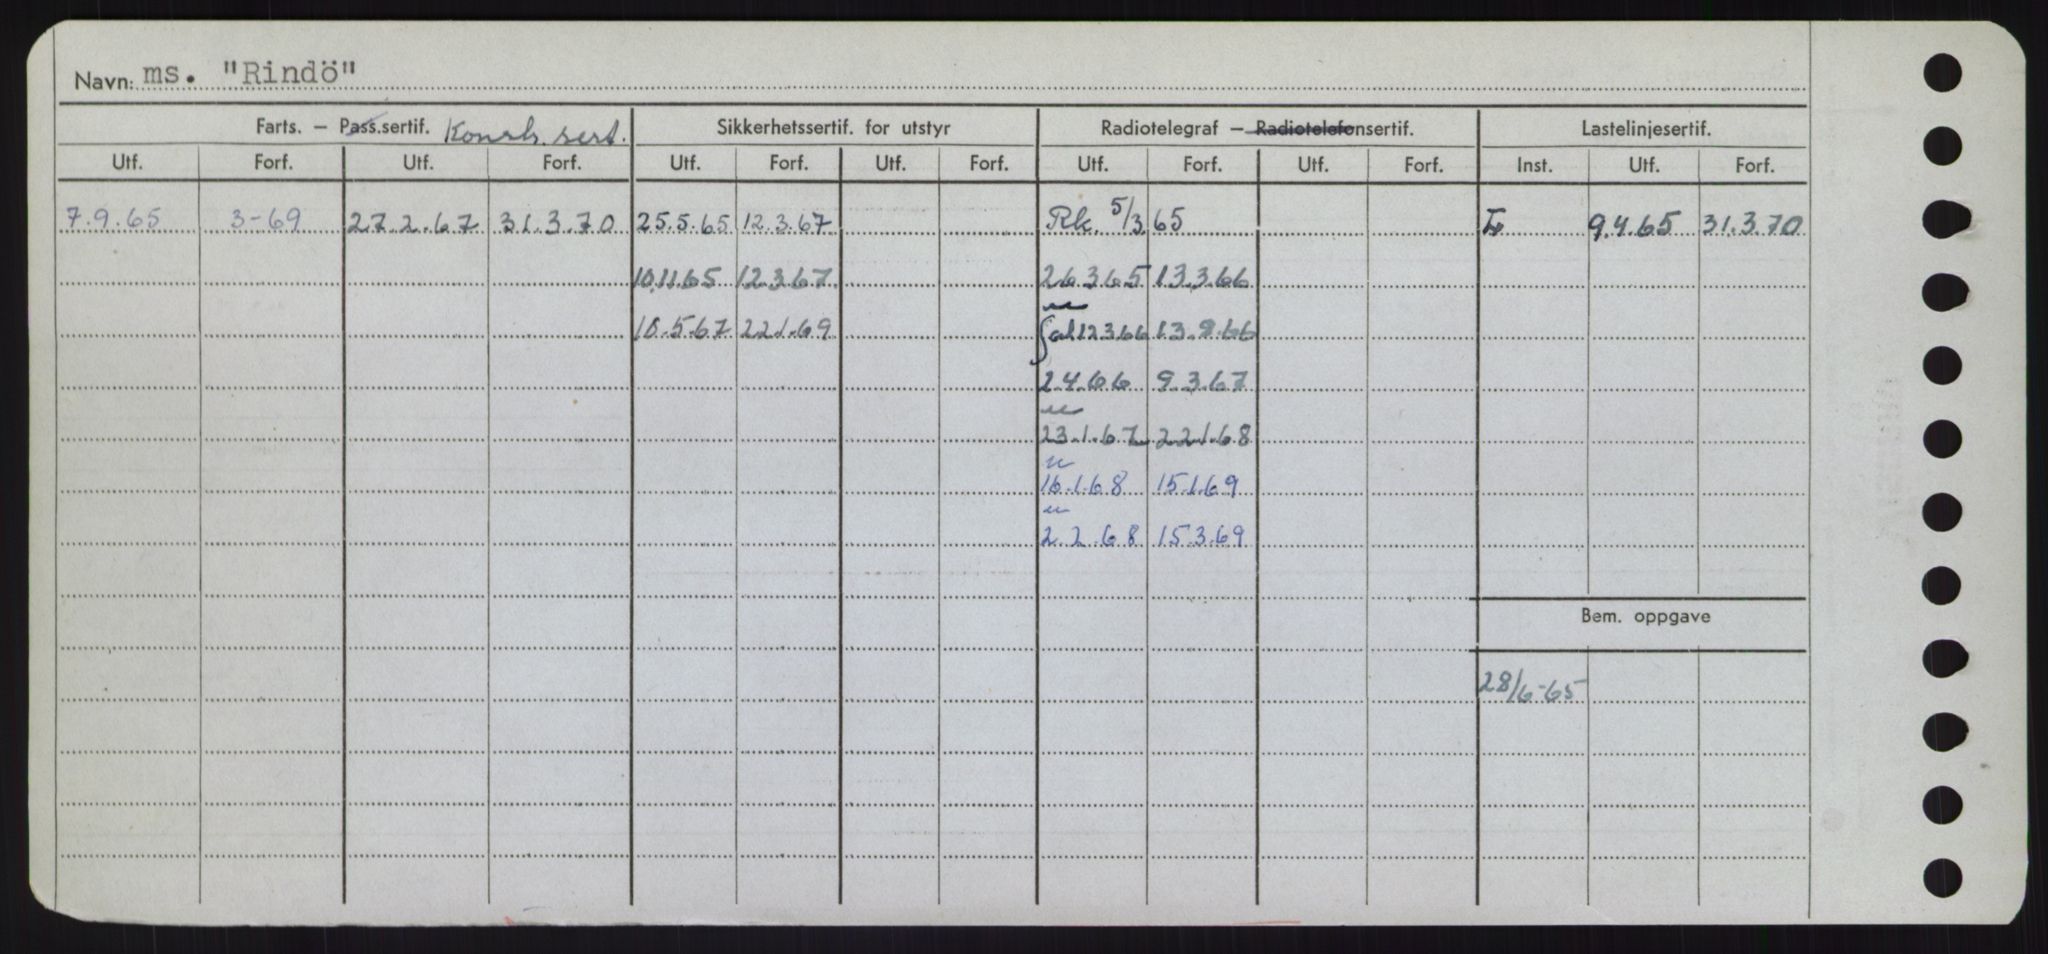 Navn: ms. "Rindö"
Farts. – Pass.sertif. Konstr. sert. Sikkerhetssertif. for utstyr Radiotelegraf – Radiotelefonsertif. Lastelinjesertif.
Utf. Forf. Utf. Forf. Utf. Forf. Utf. Forf. Utf. Forf. Utf. Forf. Inst. Utf. Forf.
7.9.65 3-69 27.2.67 31.3.70 25.5.65 12.3.67 Rk. 5/3.65 9.4.65 31.3.70
10.11.65 12.3.67 26.3.65 13.3.66
10.5.67 22.1.69 12.3.66
2.4.66 9.3.67
23.1.67 22.1.68
16.1.68 15.1.69
2.2.68 15.3.69
Bem. oppgave
28/6-65